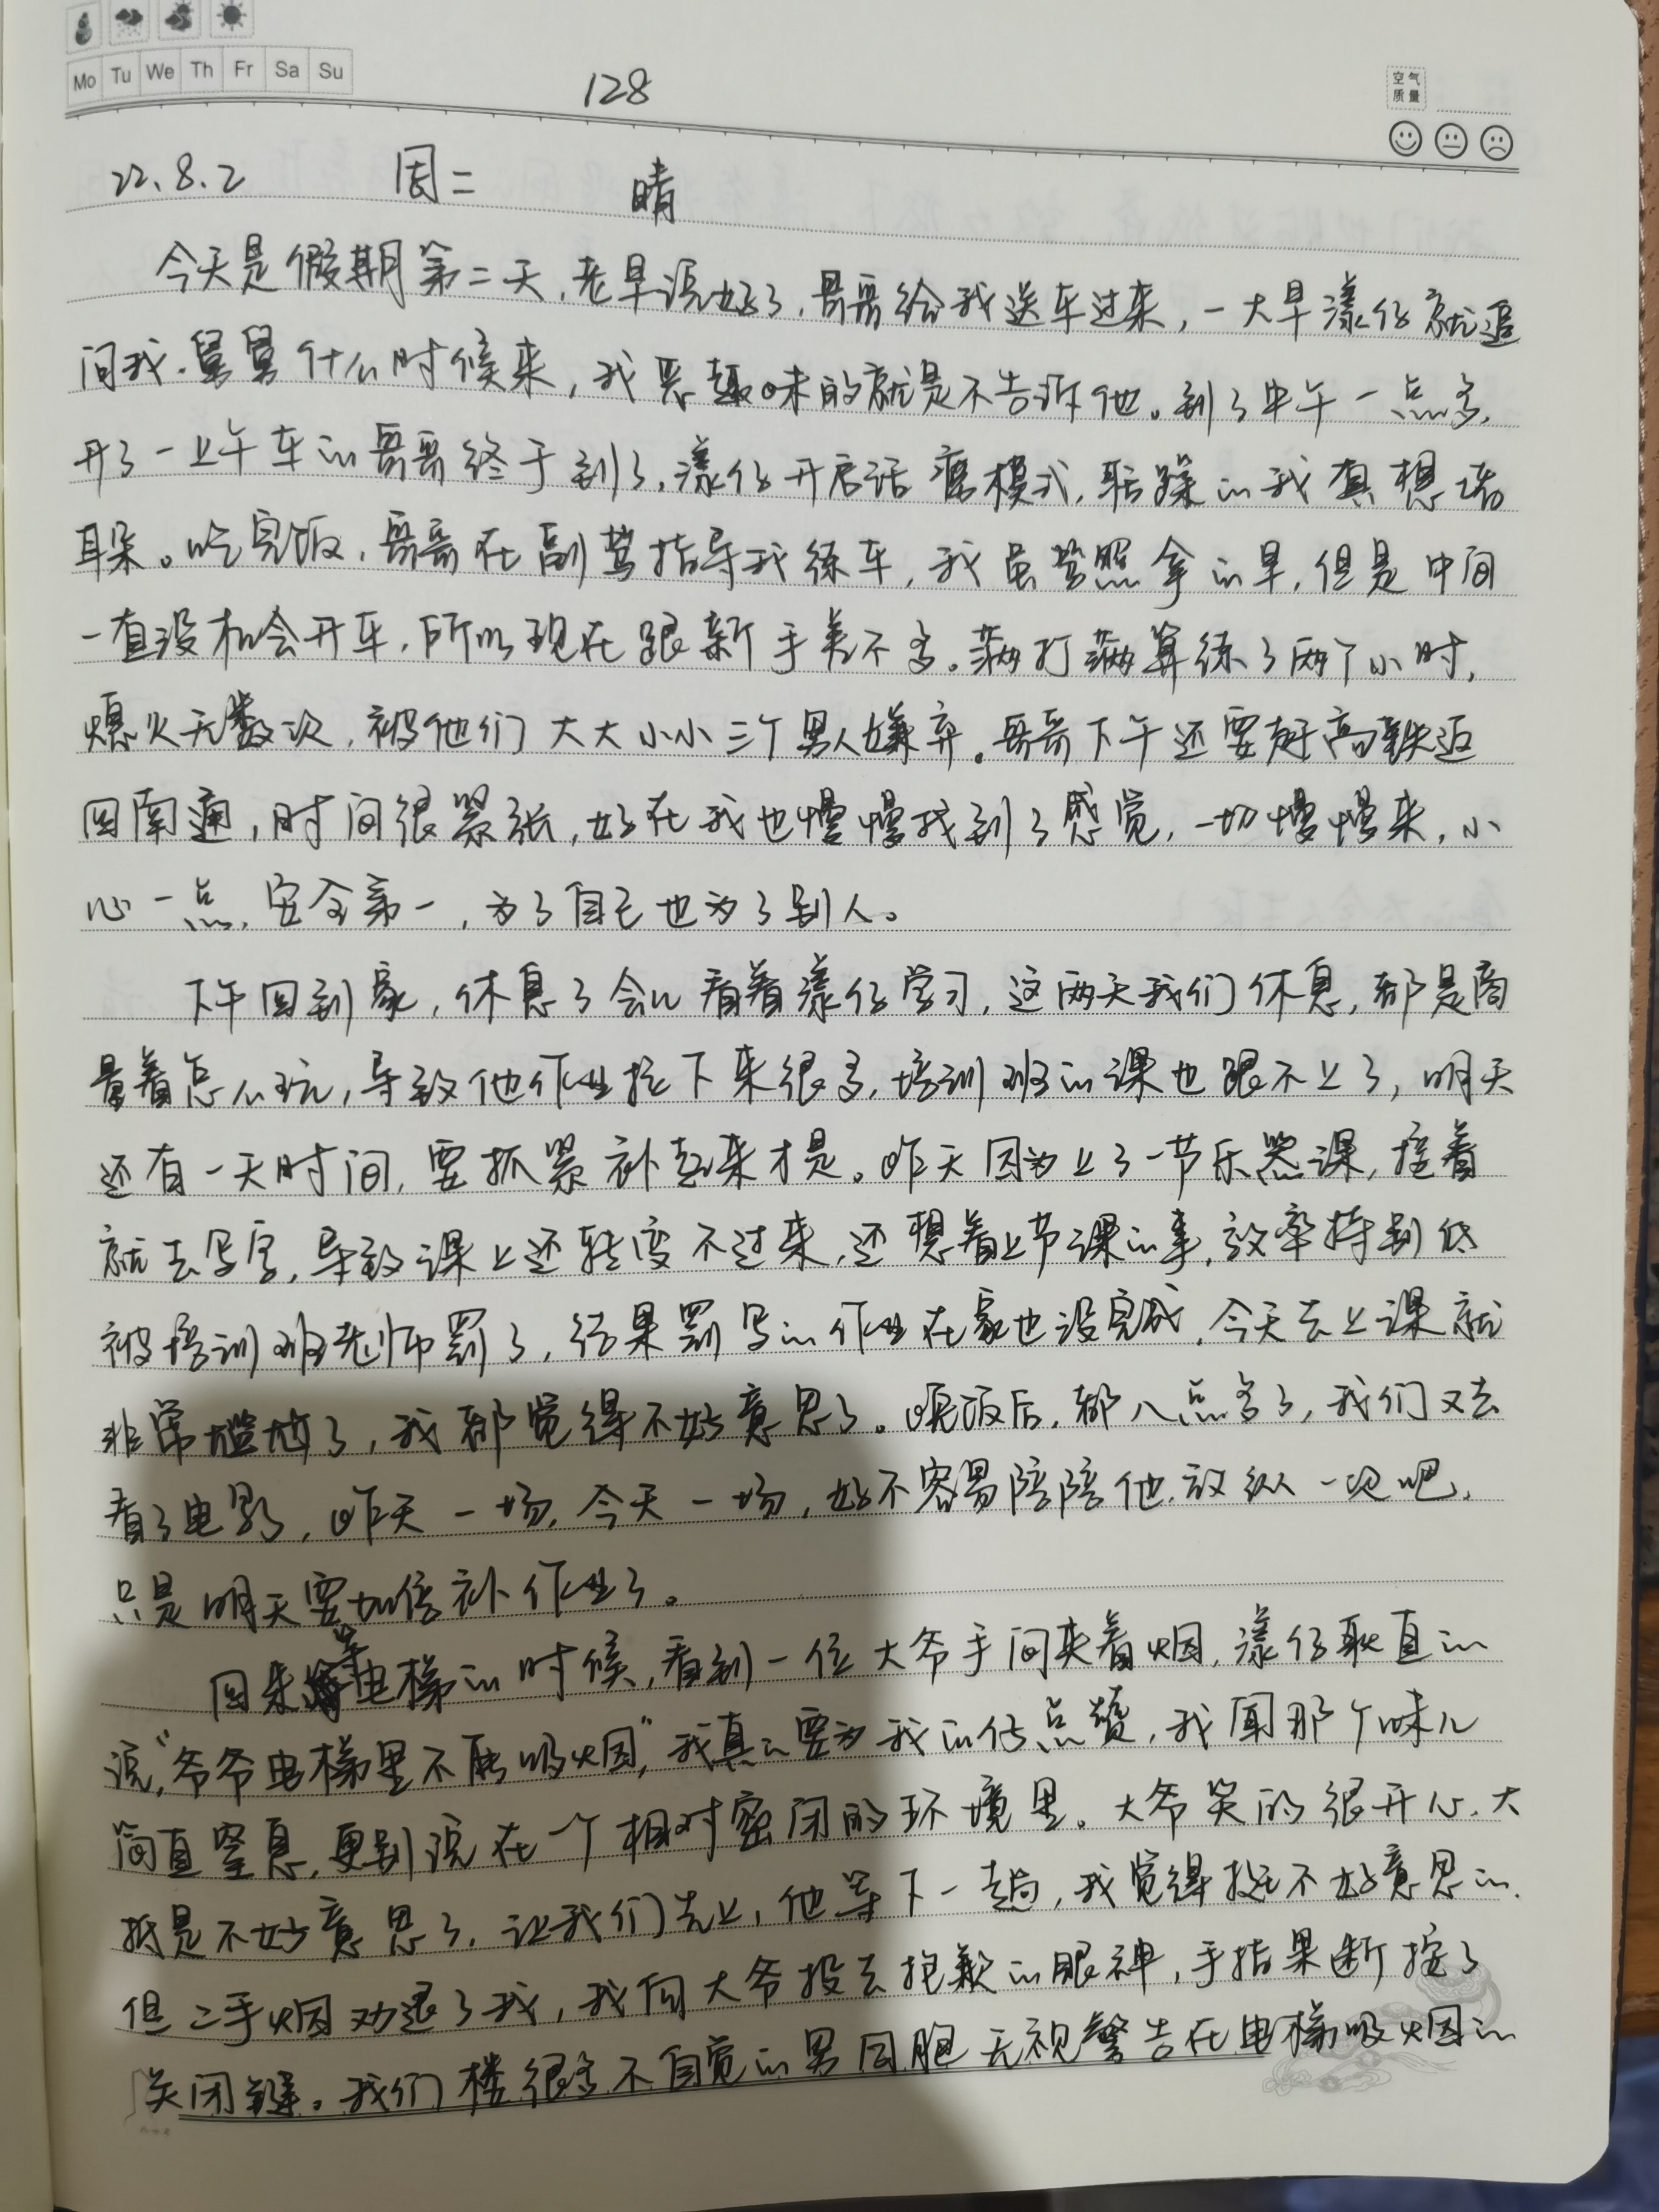 Mo Tu We Th Fr Sa Su
128
空气
质量
22.8.2 周二 晴
今天是假期第二天,老早说好了,哥哥给我送车过来,一大早漾仔就追
问我.舅舅什么时候来,我恶趣味的就是不告诉他。到了中午一点多,
开了一上午车的哥哥终于到了,漾仔开启话痨模式,聒躁的我真想堵
耳朵。吃完饭,哥哥在副驾指导我练车,我虽驾照拿的早,但是中间
一直没机会开车,所以现在跟新手差不多。满打满算练了两个小时,
熄火无数次,被他们大大小小三个男人嫌弃。哥哥下午还要赶高铁返
回南通,时间很紧张,好在我也慢慢找到了感觉,一切慢慢来,小
心一点,安全第一,为了自己也为了别人。
下午回到家,休息了会儿看着漾仔学习,这两天我们休息,都是商
量着怎么玩,导致他作业拉下来很多,培训班的课也跟不上了,明天
还有一天时间,要抓紧补起来才是。昨天因为上了一节乐器课,接着
就去写字,导致课上还转变不过来,还想着上节课的事,效率特别低
被培训班老师罚了,结果罚写的作业在家也没完成,今天去上课就
非常尴尬了,我都觉得不好意思了。晚饭后,都八点多了,我们又去
看了电影,昨天一场,今天一场,好不容易陪陪他,放纵一次吧,
只是明天要加倍补作业了。
回来等电梯的时候,看到一位大爷手间夹着烟,漾仔耿直的
说,“爷爷电梯里不能吸烟”,我真的要为我的仔点赞,我闻那个味儿
简直窒息,更别说在一个相对密闭的环境里。大爷笑的很开心,大
抵是不好意思了,让我们先上,他等下一趟,我觉得挺不好意思的.
但二手烟劝退了我,我向大爷投去抱歉的眼神,手指果断按了
关闭键。我们楼很多不自觉的男同胞无视警告在电梯吸烟的